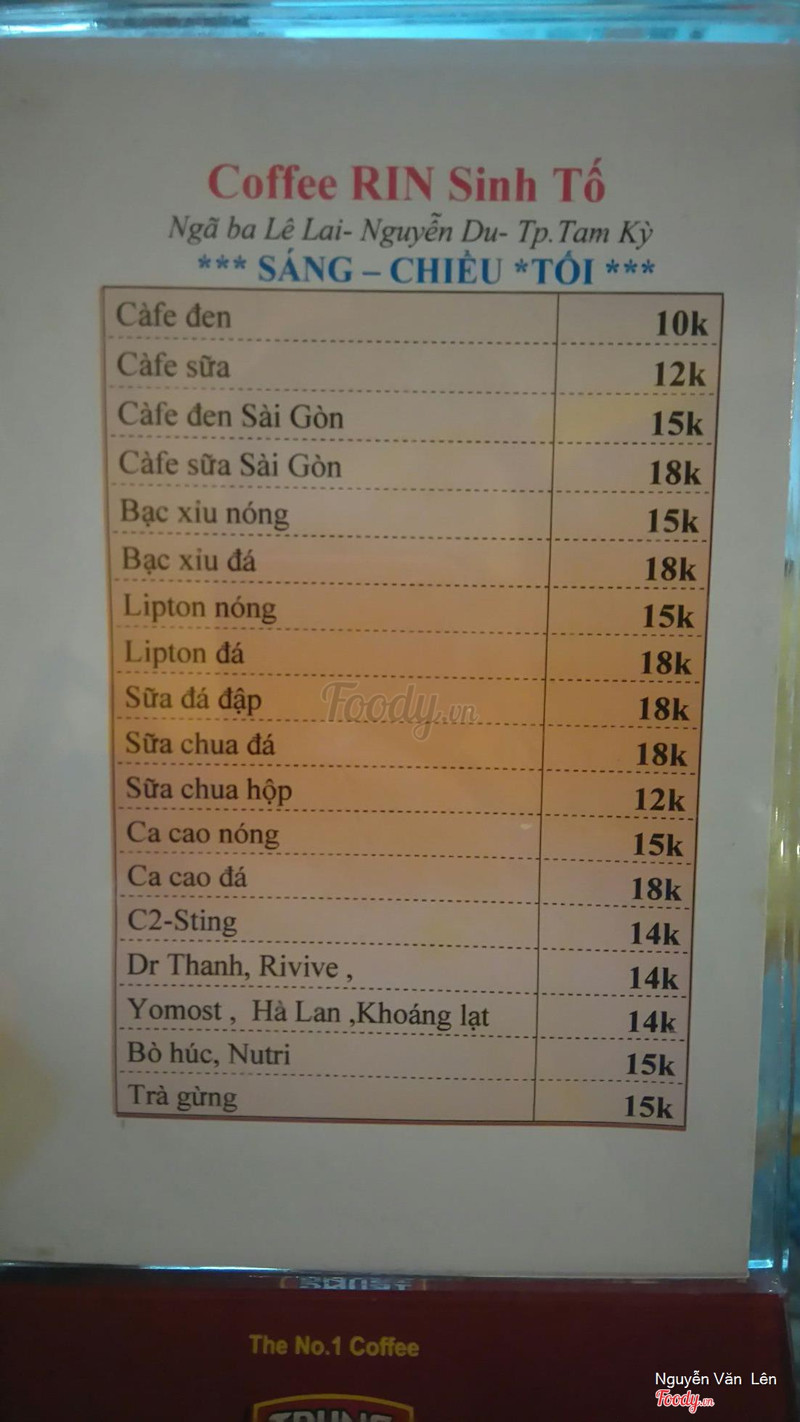 Coffee RIN Sinh Tố
Ngã ba Lê Lai- Nguyễn Du- Tp.Tam Kỳ
*** SÁNG – CHIỀU *TỐI ***
Càfe đen 10k
Càfe sữa 12k
Càfe đen Sài Gòn 15k
Càfe sữa Sài Gòn 18k
Bạc xiu nóng 15k
Bạc xiu đá 18k
Lipton nóng 15k
Lipton đá 18k
Sữa đá đập 18k
Sữa chua đá 18k
Sữa chua hộp 12k
Ca cao nóng 15k
Ca cao đá 18k
C2-Sting 14k
Dr Thanh, Rivive , 14k
Yomost , Hà Lan ,Khoáng lạt 14k
Bò húc, Nutri 15k
Trà gừng 15k
Foody.vn
The No.1 Coffee
Nguyễn Văn Lên
Foody.vn